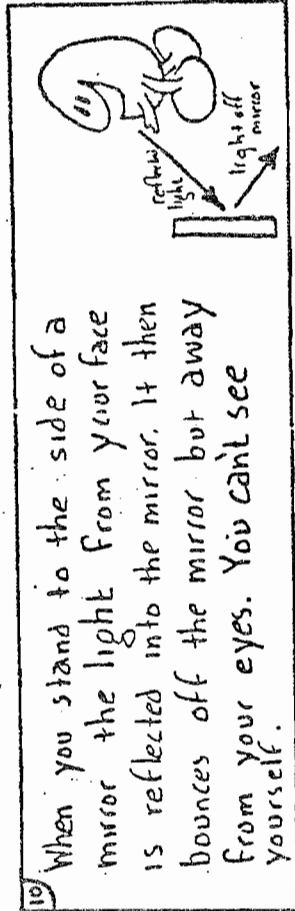 10
When you stand to the side of a
mirror the light from your face
is reflected into the mirror. It then
bounces off the mirror but away
from your eyes. You can't see
yourself.
reflected
light
light off
mirror